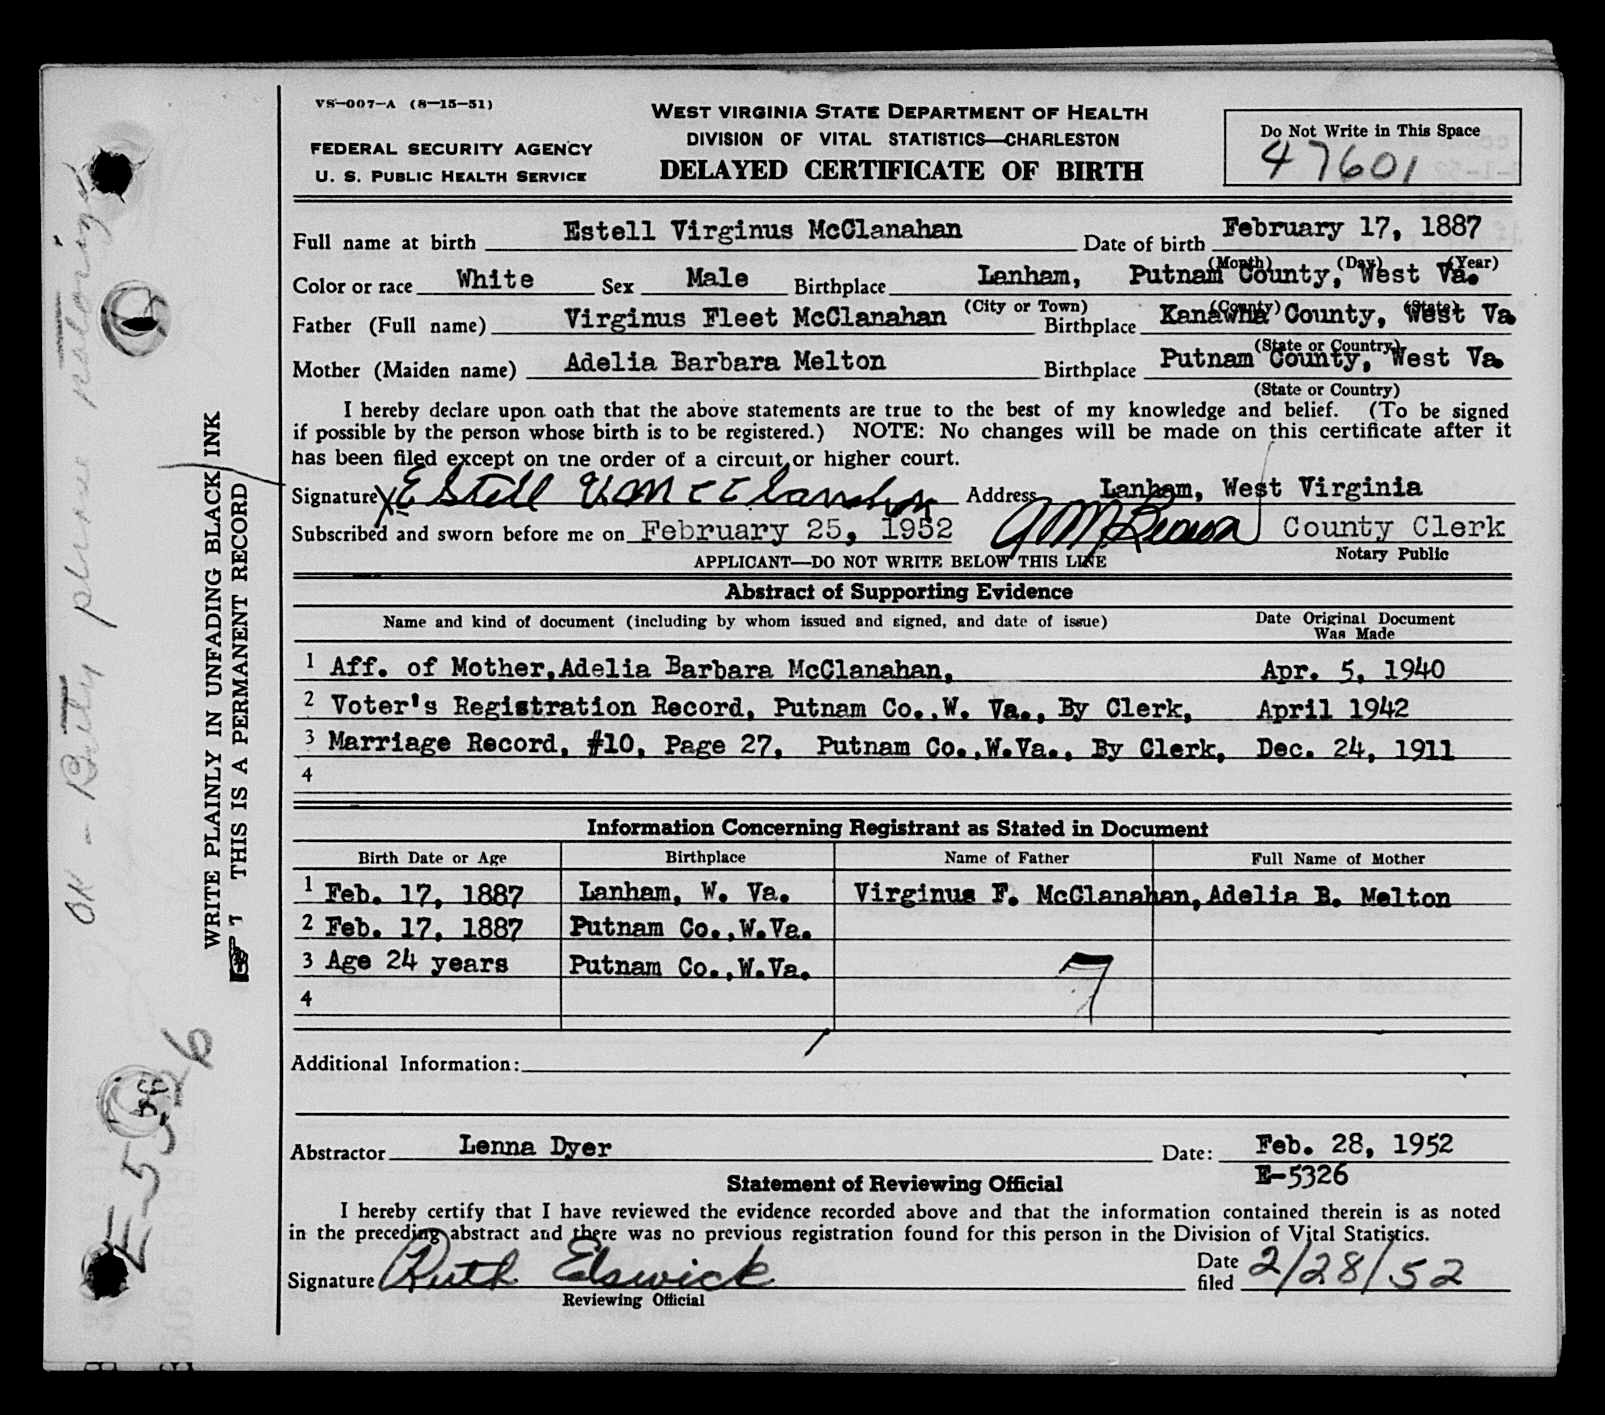 VS-007-A (8-15-51)
FEDERAL SECURITY AGENCY
U. S. PUBLIC HEALTH SERVICE
WEST VIRGINIA STATE DEPARTMENT OF HEALTH
DIVISION OF VITAL STATISTICS—CHARLESTON
DELAYED CERTIFICATE OF BIRTH
Do Not Write in This Space
47601
Full name at birth Estell Virginus McClanahan Date of birth February 17, 1887
(Month) (Day) (Year)
Color or race White Sex Male Birthplace Lanham, Putnam County, West Va.
(City or Town) (County) (State)
Father (Full name) Virginus Fleet McClanahan Birthplace Kanawha County, West Va
(State or Country)
Mother (Maiden name) Adelia Barbara Melton Birthplace Putnam County, West Va.
(State or Country)
I hereby declare upon oath that the above statements are true to the best of my knowledge and belief. (To be signed
if possible by the person whose birth is to be registered.) NOTE: No changes will be made on this certificate after it
has been filed except on the order of a circuit or higher court.
Signature X Estell V. McClanahan Address Lanham, West Virginia
Subscribed and sworn before me on February 25, 1952 County Clerk
Notary Public
APPLICANT—DO NOT WRITE BELOW THIS LINE
Abstract of Supporting Evidence
Name and kind of document (including by whom issued and signed, and date of issue) Date Original Document
Was Made
1 Aff. of Mother, Adelia Barbara McClanahan, Apr. 5, 1940
2 Voter's Registration Record, Putnam Co., W. Va., By Clerk, April 1942
3 Marriage Record, #10, Page 27, Putnam Co., W.Va., By Clerk, Dec. 24, 1911
4
Information Concerning Registrant as Stated in Document
Birth Date or Age Birthplace Name of Father Full Name of Mother
1 Feb. 17, 1887 Lanham, W. Va. Virginus F. McClanahan, Adelia B. Melton
2 Feb. 17, 1887 Putnam Co., W.Va.
3 Age 24 years Putnam Co., W.Va.
7
4
Additional Information:
Abstractor Lenna Dyer Date: Feb. 28, 1952
E-5326
Statement of Reviewing Official
I hereby certify that I have reviewed the evidence recorded above and that the information contained therein is as noted
in the preceding abstract and there was no previous registration found for this person in the Division of Vital Statistics.
Signature Ruth Elswick Date filed 2/28/52
Reviewing Official
WRITE PLAINLY IN UNFADING BLACK INK
THIS IS A PERMANENT RECORD
OK - Betty please
E-5326